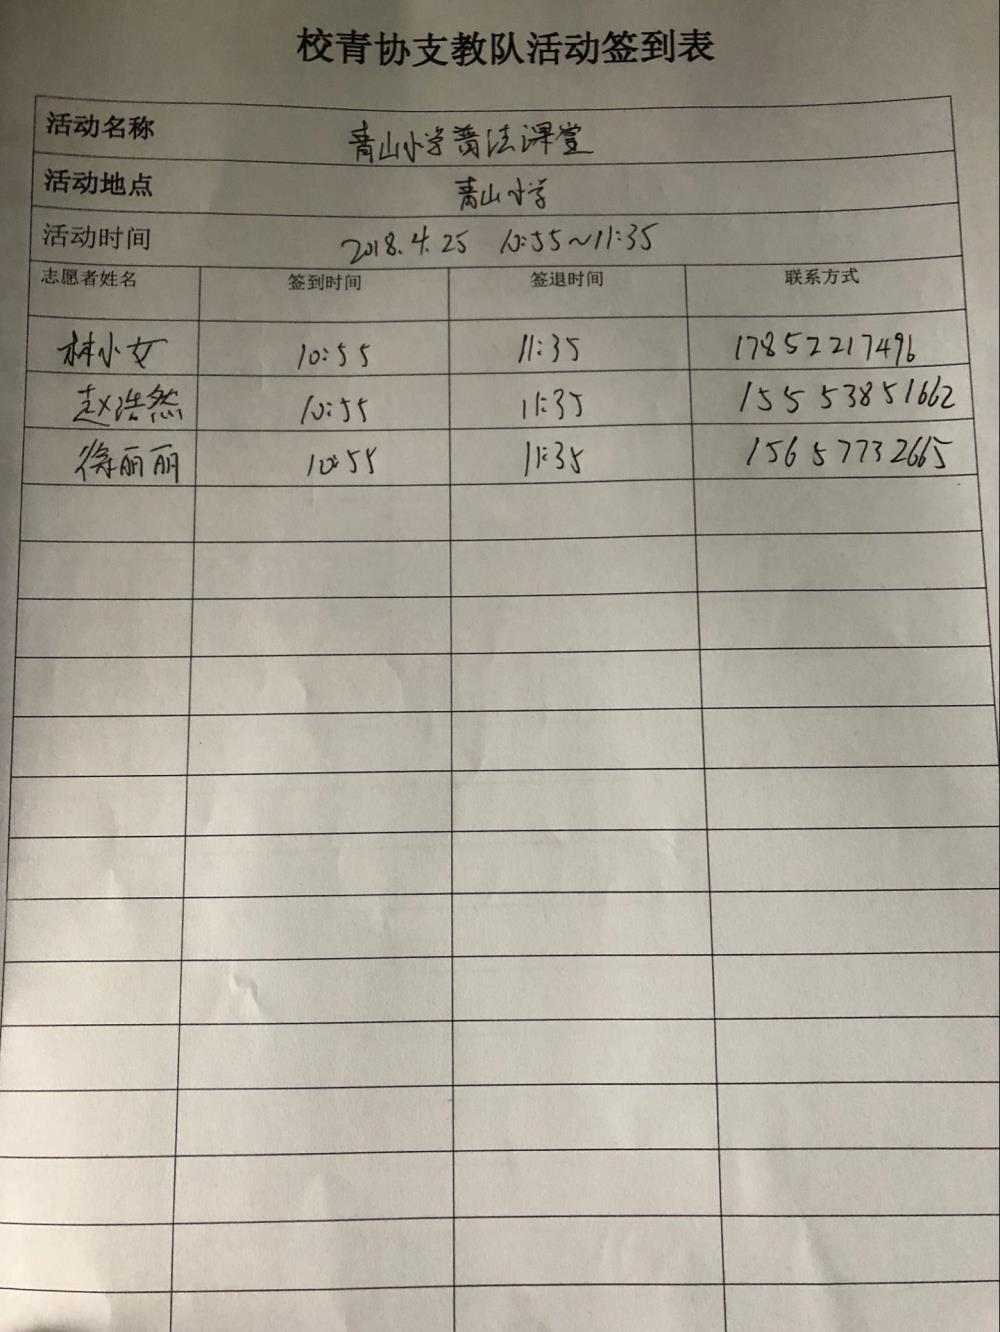 校青协支教队活动签到表
活动名称 青山小学普法课堂
活动地点 青山小学
活动时间 2018.4.25 10:55~11:35
志愿者姓名 签到时间 签退时间 联系方式
林小女 10:55 11:35 17852217496
赵浩然 10:55 11:35 15553851662
徐丽丽 10:55 11:35 15657732665